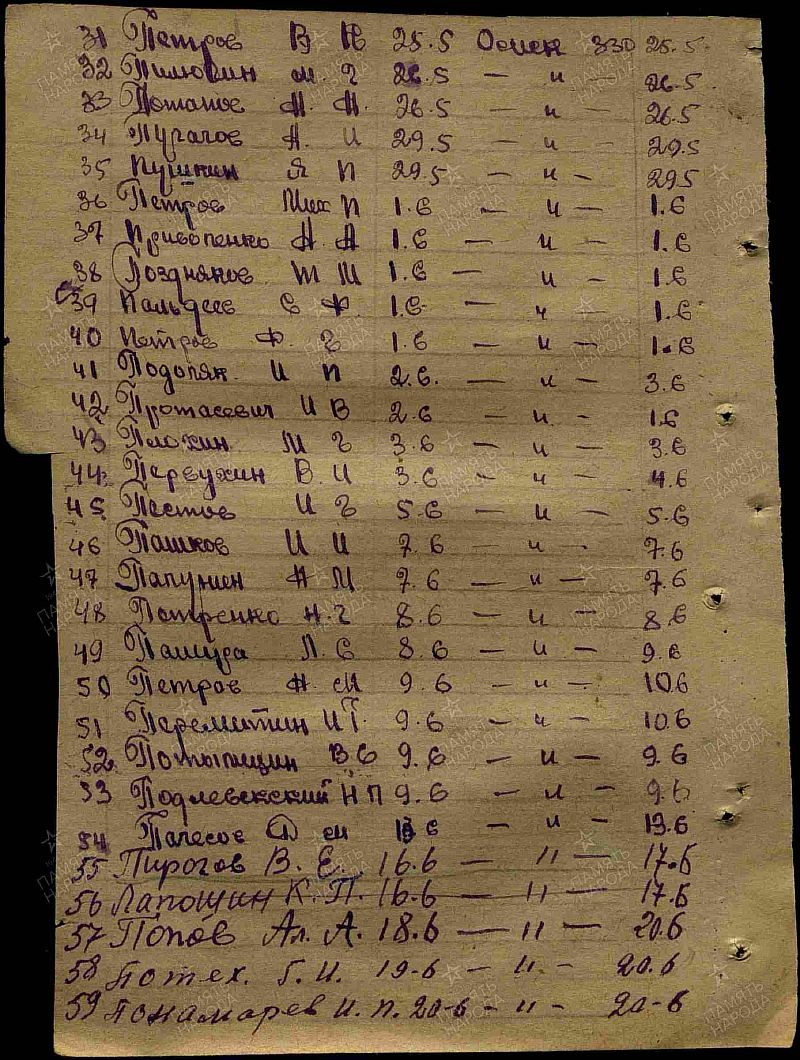 31 Петров В Н 25.5 Осмен 330 25.5
32 Пилюгин М. Г 26.5 — и — 26.5
33 Потапов Н. Н. 26.5 — и — 26.5
34 Пугачов Н. И 29.5 — и — 29.5
35 Пушкин Я П 29.5 — и — 295
36 Петров Мих П 1.6 — и — 1.6
37 Привопенко Н А 1.6 — и — 1.6
38 Поздняков М 1.6 — и — 1.6
39 Пальдеев С Ф. 1.6. — и — 1.6
40 Петров Ф. Г 1.6 — и — 1.6
41 Подопян И П 2.6. — и — 3.6
42 Протасевич И В 2.6 — и — 1.6
43 Плохин М Г 3.6 — и — 3.6
44 Первухин В И 3.6 — и — 4.6
45 Пестов И Г 5.6 — и — 5.6
46 Пашков И И 7.6 — и — 7.6
47 Папунин Н М 7.6 — и — 7.6
48 Петренко Н. Г 8.6 — и — 8.6
49 Пашура Л. С 8.6 — и — 9.6
50 Петров Н М 9.6 — и — 10.6
51 Перемитин И Г. 9.6 — и — 10.6
52 В С 9.6 — и — 9.6
53 Подлевский Н П 9.6 — и — 9.6
54 Палесов Ф — и — 13.6
55 Пирогов В. Е. 16.6 — 11 — 17.6
56 Лапошин К. П. 16.6 — 11 — 17.6
57 Попов Ал. А. 18.6 — 11 — 20.6
58 Потех. Г. И. 19-6 — 11 — 20.6
59 Понамарев И. П. 20-6 — 11 — 20-6
ПАМЯТЬ НАРОДА